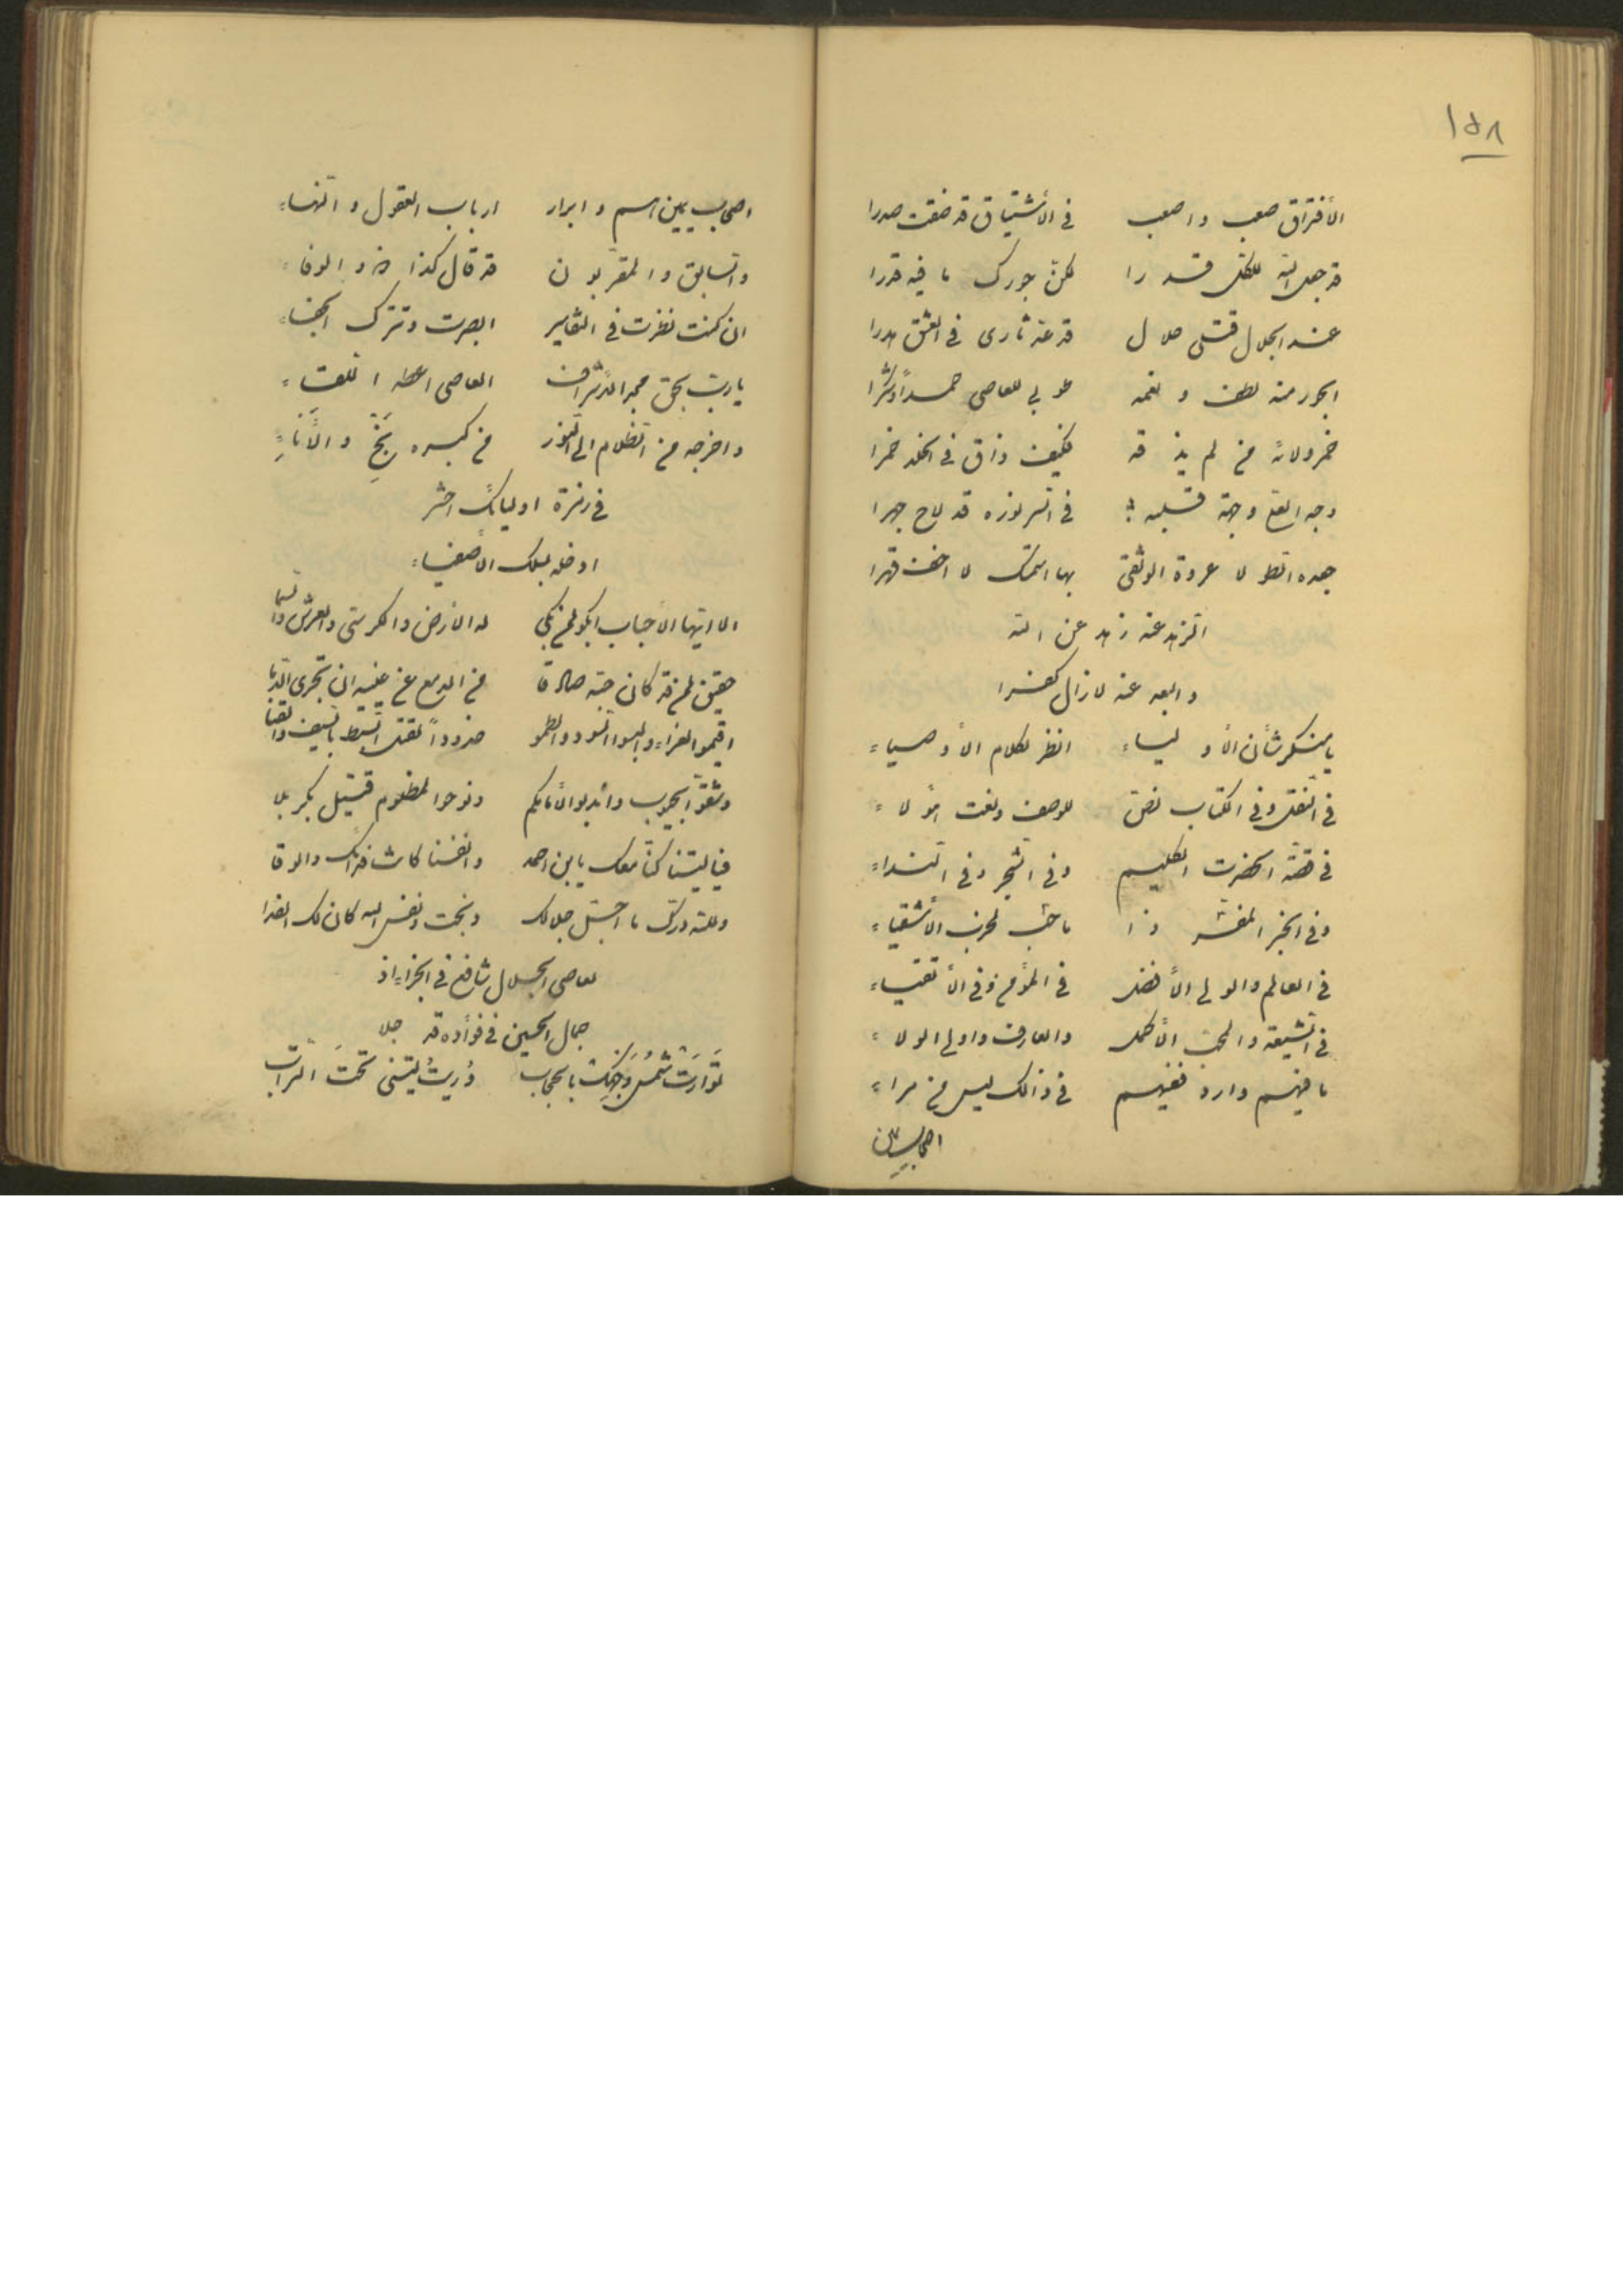 ١٥٨
الأفتراق صعب واصعب في الأشتياق قد ضقت صدرا
قد جعل الله للكل قدرا لكن جورك ما فيه قدرا
عند الجلال قتلى حلال قد عد ثارى في العشق هدرا
الجور منه لطف و نعمه طوبى للعاصي حمداً وشكراً
خمر ولائه من لم يذقه فكيف ذاق في الخلد خمرا
وجه وجهة قلبه في السر نوره قد لاح جهرا
هذه عروة الوثقى بها استمسك لا اخف قهرا
الزهد عنه زهد عن الله
والبعد عنه لا زال كفرا
يا منكر شأن الأولياء انظر لكلام الأوصياء
في النقل وفي الكتاب نص للوصف ونعت هؤلاء
في قصة الحضرت الكليم وفي الشجر وفي النداء
وفي الخبر المفسر ذا لحرب الأشقياء
في العالم والولي الأفضل في المؤمن وفي الأتقياء
في الشيعة والمحب الأكمل والعارف واولى الولاء
ما فيهم وارد ففيهم في ذالك ليس من مراء
اصحاب يمين
اصحاب يمين اسم و ابرار ارباب العقول و النهاء
والسابق والمقربون قد قال كذا ذو الوفاء
ان كنت نظرت في التفاسير ابصرت وتترك الجفاء
يا رب بحق مجد الأشراف العاصي اعطه اللقاء
واخرجه من الظلام الى النور من كبره نَجِّ والأَنَاءِ
في زمرة اوليائك احشر
ادخله بملك الأصفياء
الا ايها الأحباب ابكوا لمن بكى له الارض والكرسي والعرش والسما
حقيق لمن قد كان حبه صادقا من الدمع عن عينيه ان تجرى الدما
اقيموا العزاء والبسوا السود والطموا خدوداً لقتل السبط بالسيف والقنا
وشقوا الجيوب واندبوا لأمامكم ونوحوا لمظلوم قتيل بكربلا
فيا ليتنا كنا معك يا ابن احمد وانفسنا كانت فدائك والوقا
ولله درك ما اجل جلالك ونجت نفس الله كان لك الفدا
لعاصي الجلال شافع في الجزاء اذ
جمال الحسين في فؤاده قد جلا
تَوَارَتْ شَمْسُ وَجْهِكَ بالحجاب وُرِيتُ ليتنى تحتَ التراب